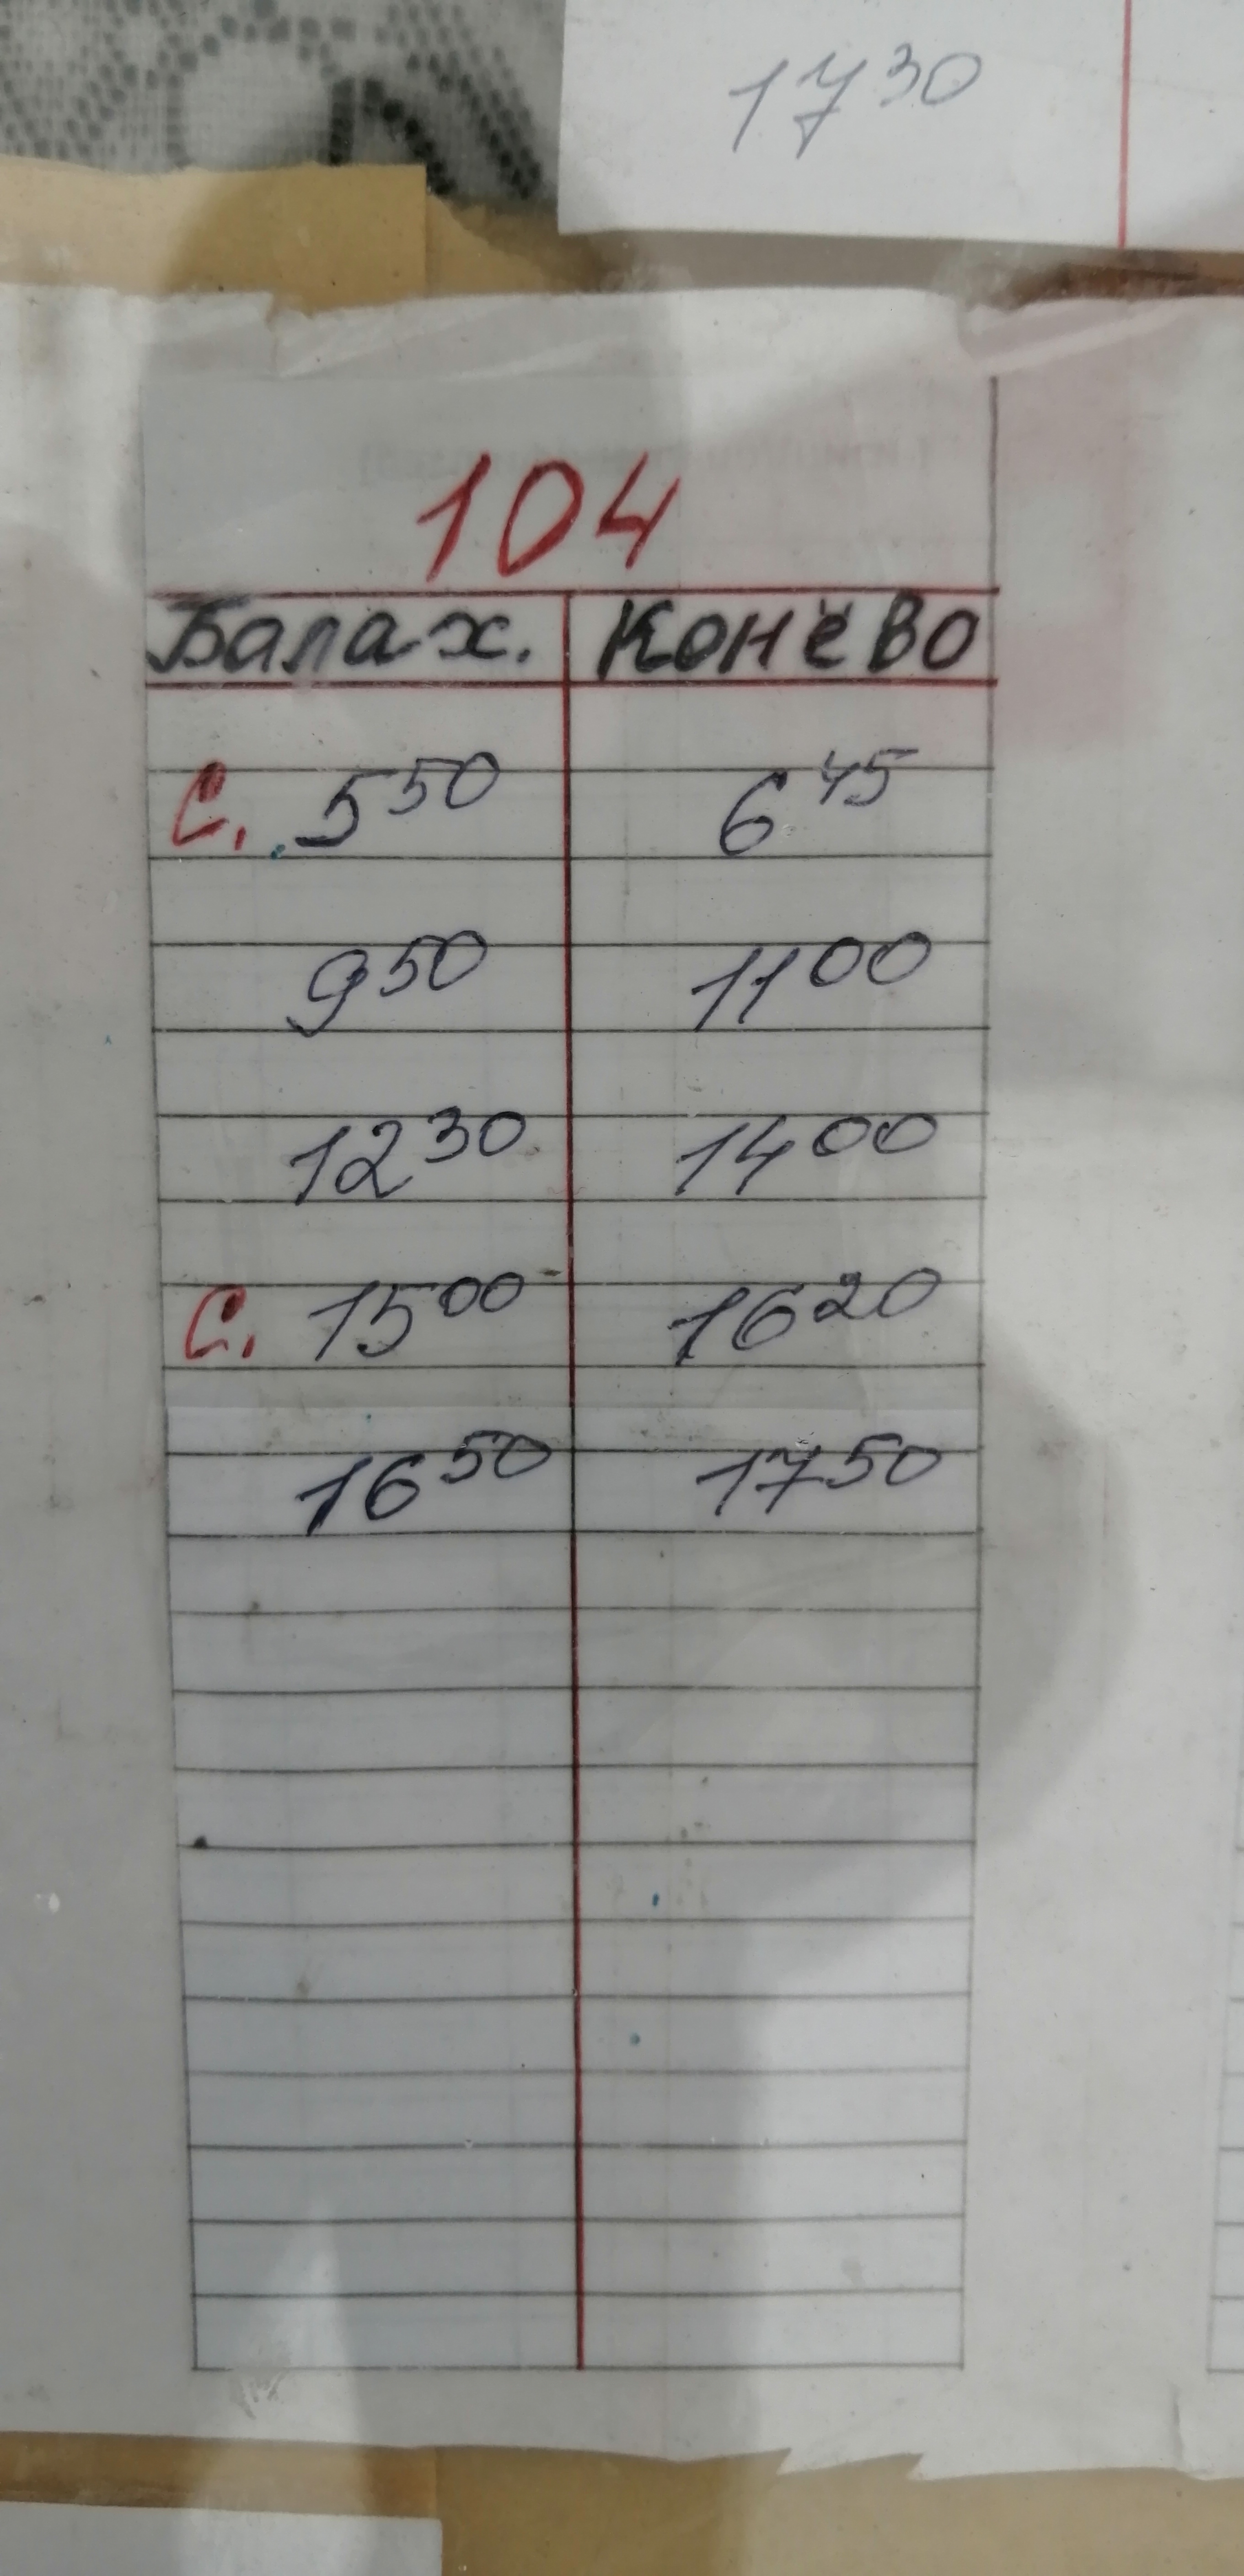 17 30
104
Балах. Конёво
С. 5 50 6 45
9 50 11 00
12 30 14 00
С. 15 00 16 20
16 50 17 50